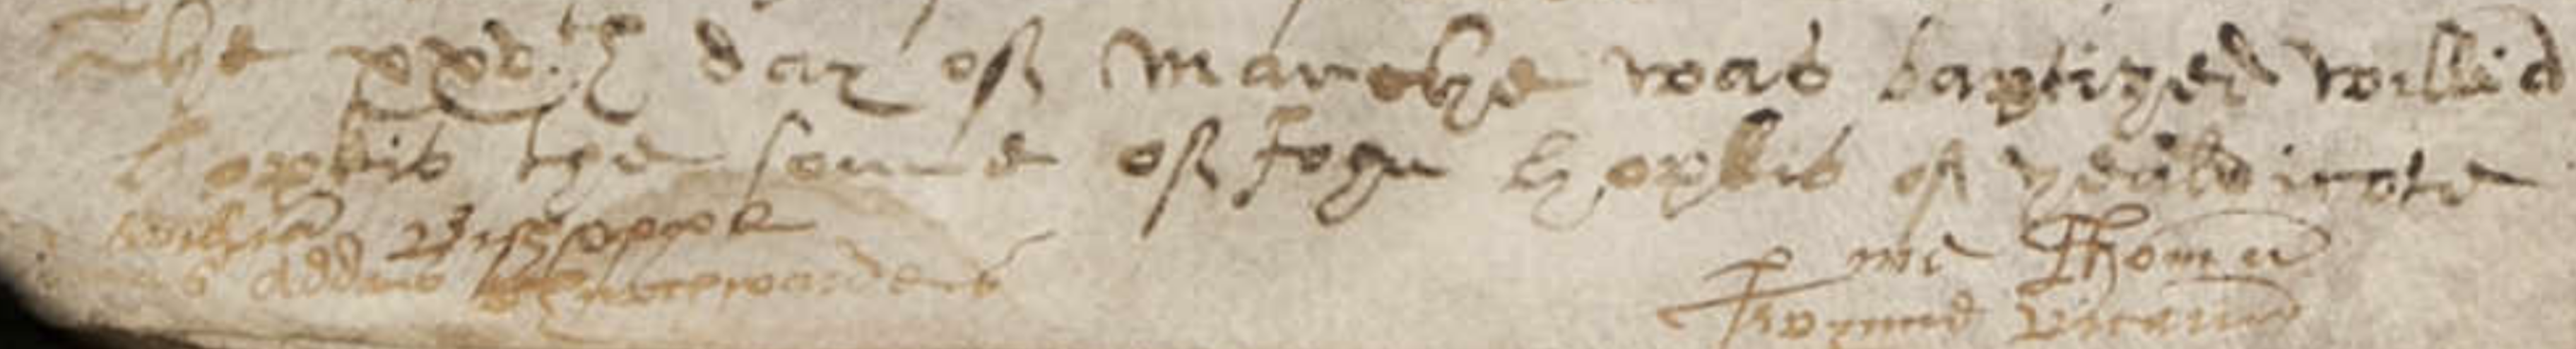 The xxvth day of Marche was baptized willia
hopkis the sonne of John hopkis of
william Bisshoppe
Addams Churchwardens
p me Thomam
vicariu